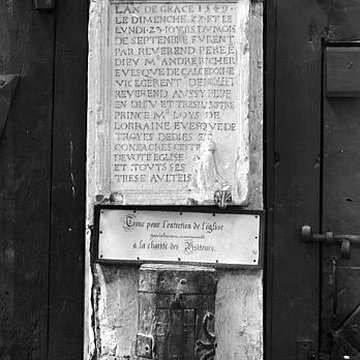 LAN DE GRACE 1549
LE DIMENCHE 22 ET LE
LVNDI 23 IOVRS DV MOIS
DE SEPTENBRE FVRENT
PAR REVEREND PERE E
DIEV Mᴿ ANDRE RICHER
EVESQVE DE CALCEDOINE
VICEGERENT DE
REVEREND AVSSY PERE
EN DIEV ET TRESILLVSTRE
PRINCE Mᴿ LOYS DE
LORRAINE EVESQVE DE
TROYES DEDIES ET
CONSACRES CESTE
DEVOTE EGLISE
ET TOVTS SES
TRESE AVLTELS
Tronc pour l'entretien de l'église
à la charité des Visiteurs.